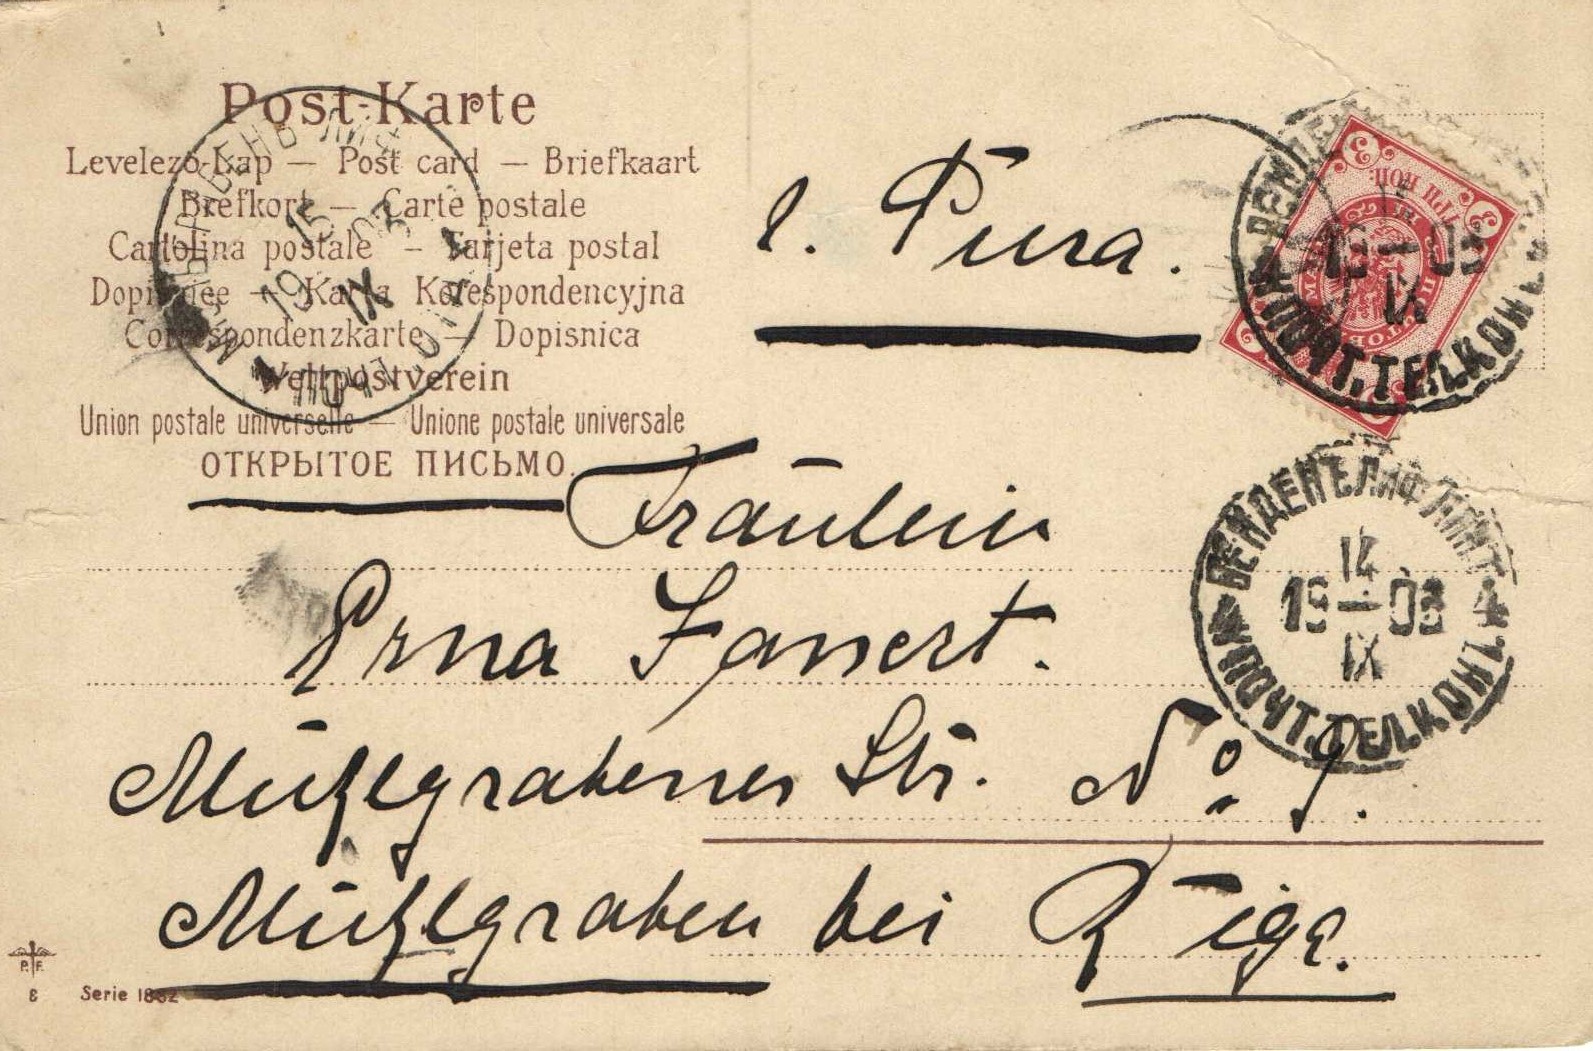 Post-Karte
Levelező-Lap — Post card — Briefkaart
Brefkort — Carte postale
Cartolina postale — Tarjeta postal
Dopisnice — Karta Korespondencyjna
Correspondenzkarte — Dopisnica
Weltpostverein
Union postale universelle — Unione postale universale
ОТКРЫТОЕ ПИСЬМО.
г. Рига.
3
ТРИ КОП.
3
14
19 — 03
IX
ПОЧТ. ТЕЛ. КОНТ.
15
19 03
IX
ПОЧТ. ОТД.
ВЕНДЕНЪ ЛИФЛЯНД
14
19 — 03
IX
ПОЧТ. ТЕЛ. КОНТ.
Fräulein
Erna Zanert.
Mühlgrabener Str. No 9.
Mühlgraben bei Riga.
P. F.
8
Serie 1882